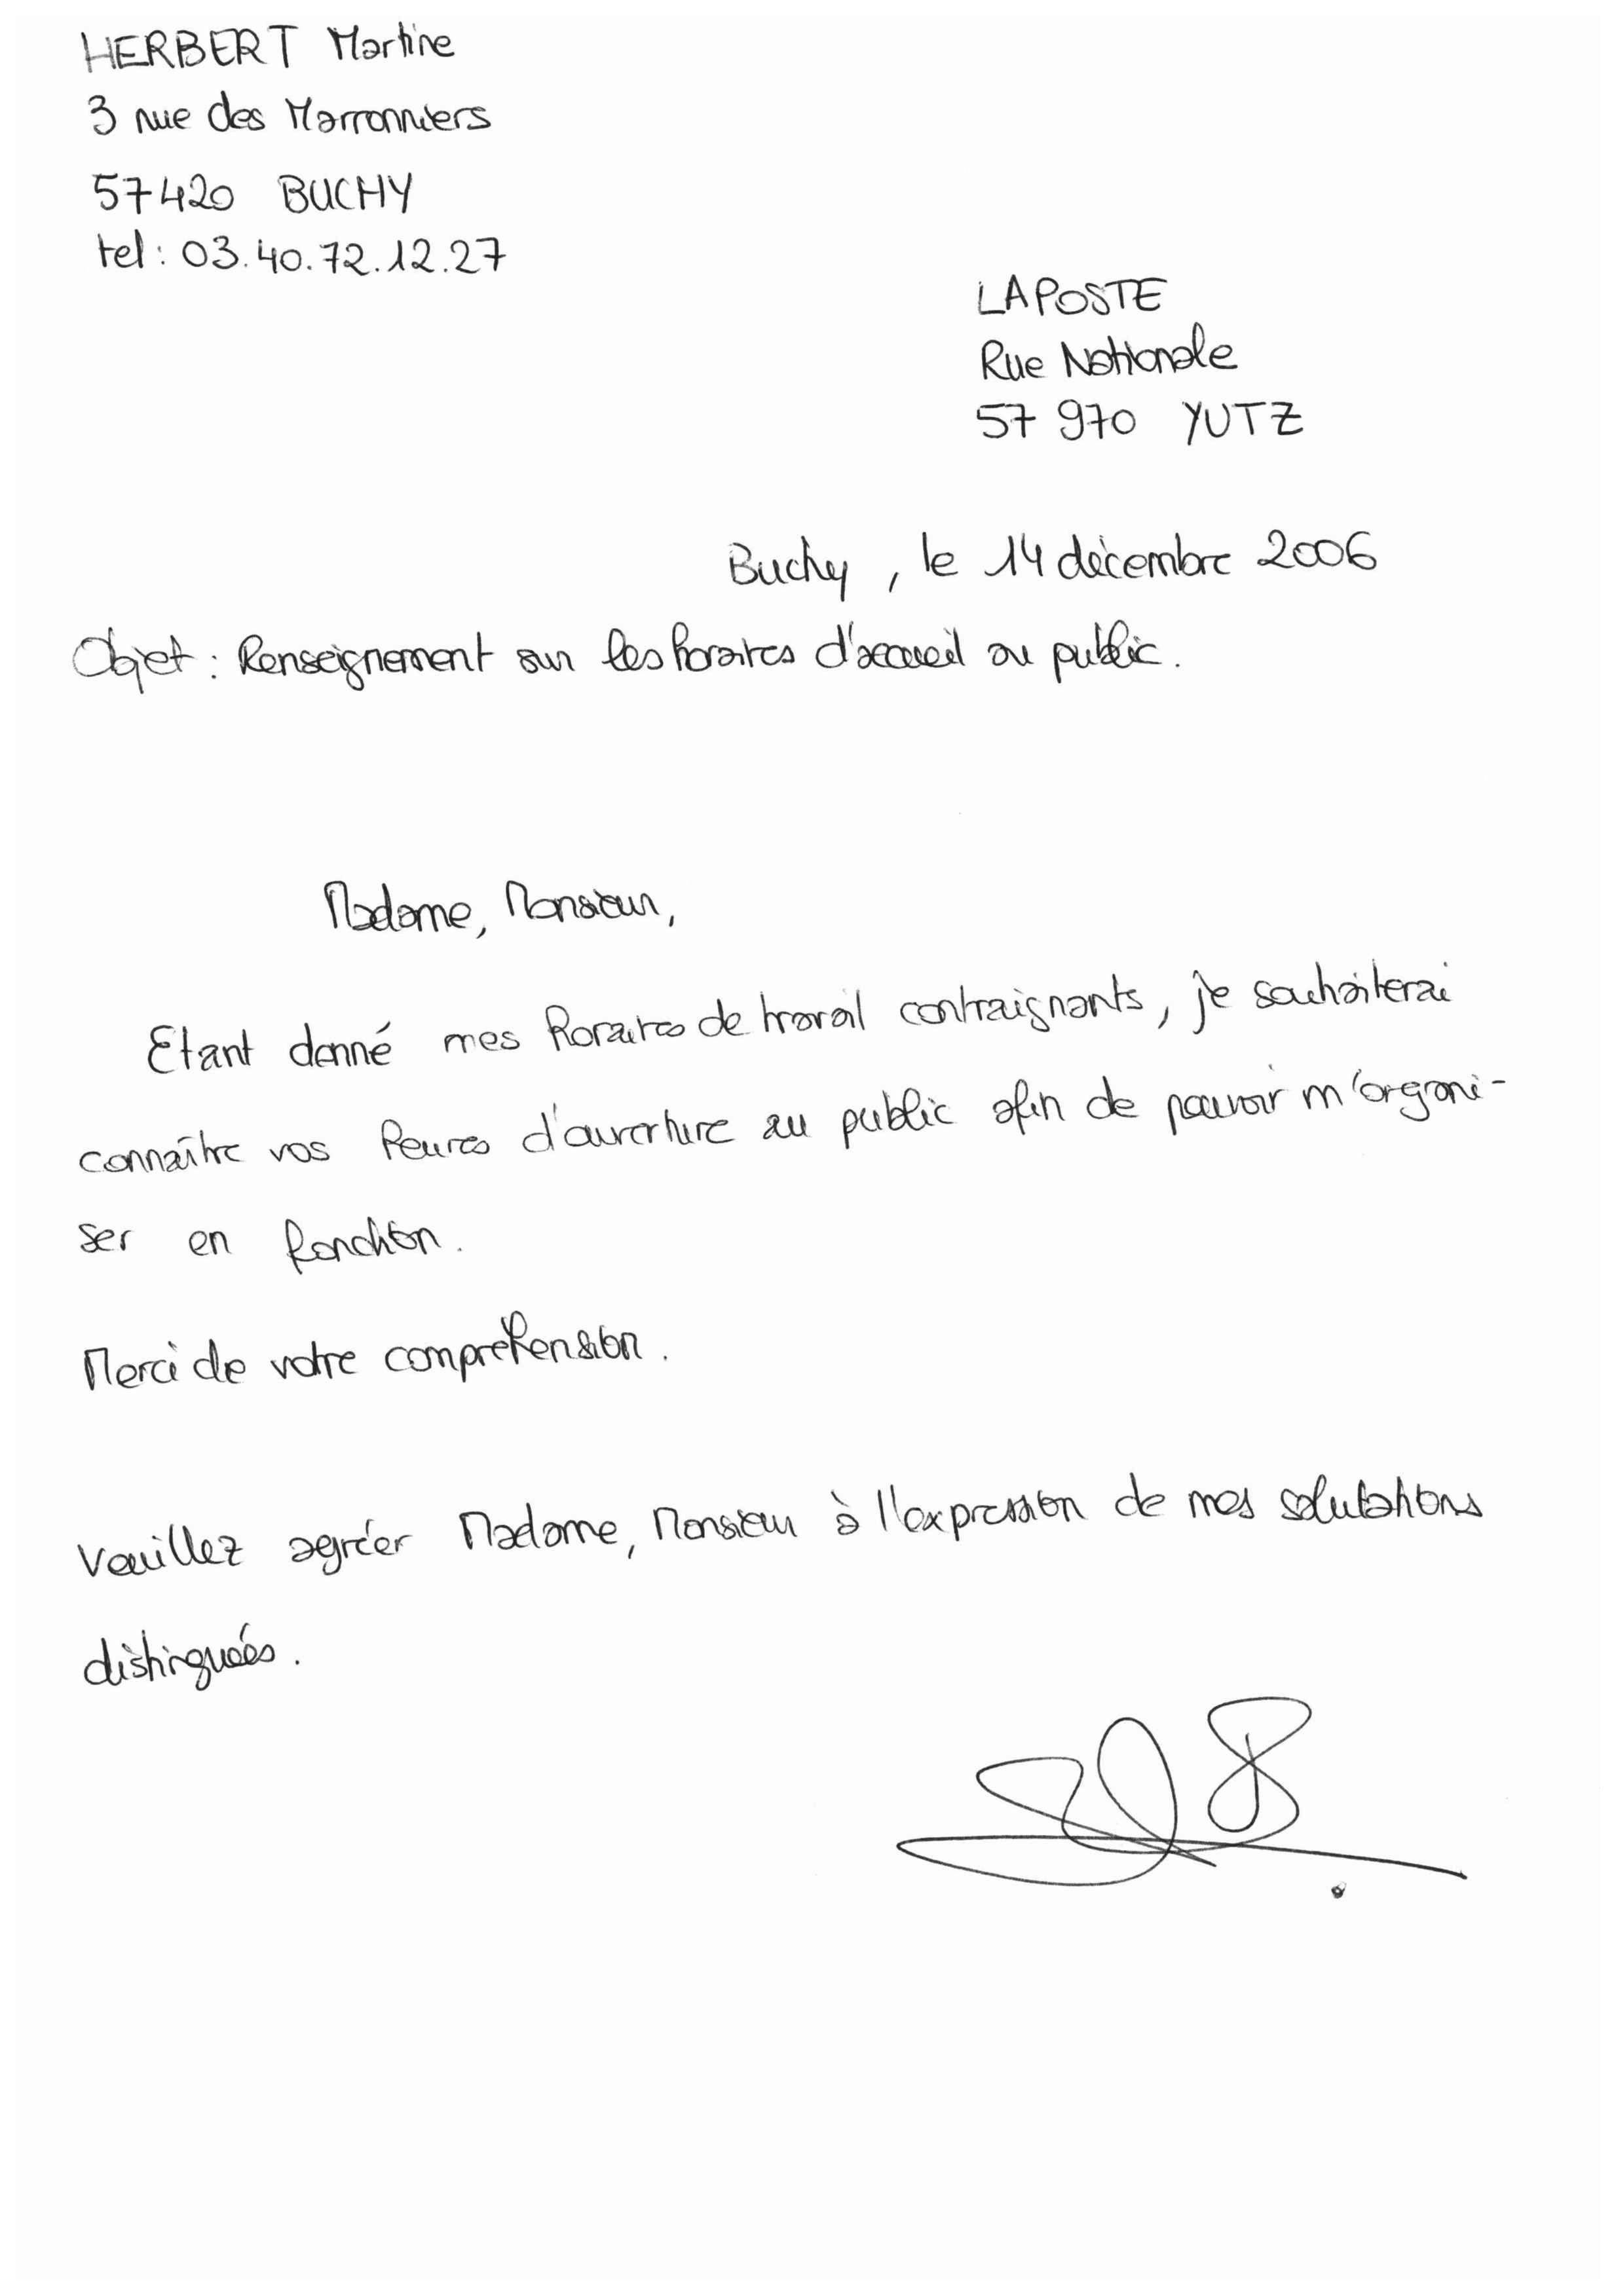 HERBERT Martine
3 rue des Marronniers
57420 BUCHY
tel : 03.40.72.12.27
LA POSTE
Rue Nationale
57 970 YUTZ
Buchy, le 14 décembre 2006
Objet : Renseignement sur les horaires d'accueil au public.
Madame, Monsieur,
Etant donné mes horaires de travail contraignants, je souhaiterai
connaître vos heures d'ouverture au public afin de pouvoir m'organi-
ser en fonction.
Merci de votre compréhension.
Veuillez agréer Madame, Monsieur à l'expression de mes salutations
distinguées.